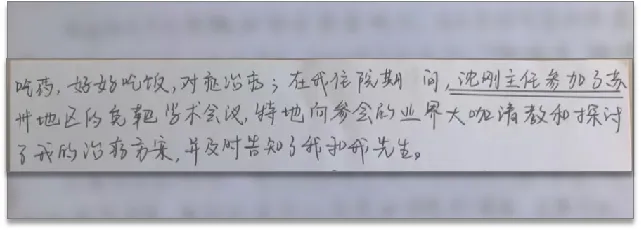 吃药,好好吃饭,对症治病;在我住院期间,沈刚主任参加了苏
州地区的免疫学术会议,特地向参会的业界大咖请教和探讨
了我的治疗方案,并及时告知了我和我先生。